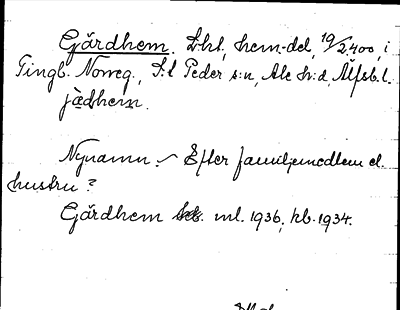 Gärdhem. Lht, hem-del, 19/2400, i
Tingb. Norreg., S:t Peder s:n, Ale h:d, Älfsb. l.
jädhem.
Nynamn. – Efter familjemedlem el.
hustru?
Gärdhem ml. 1936, kb. 1934.